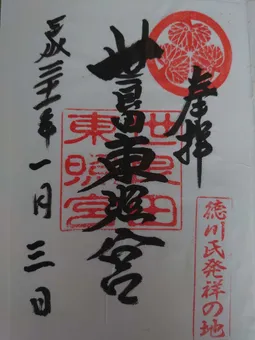 奉拝
世良田東照宮
世良田
東照宮
徳川氏発祥の地
平成三十一年一月三日